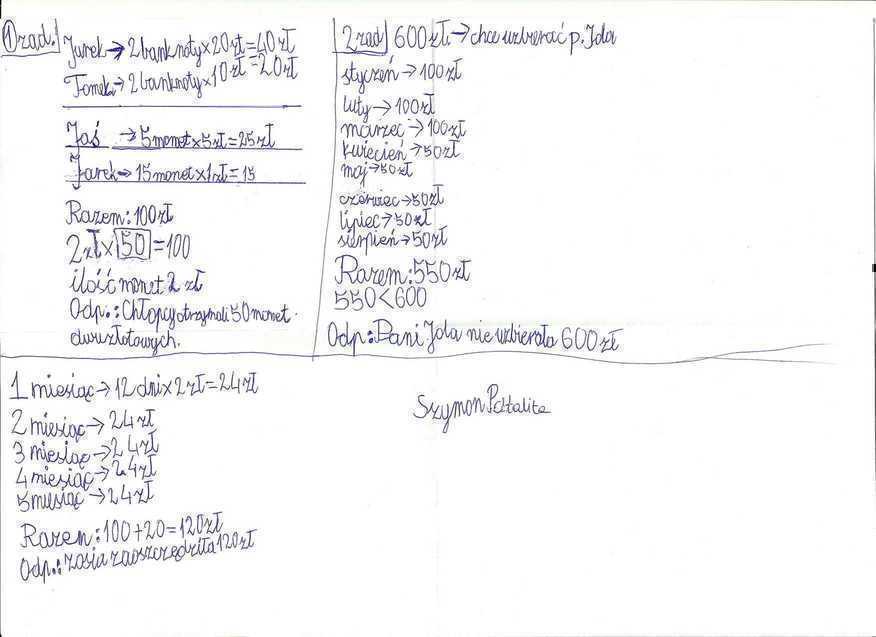 1 zad.
Jurek → 2 banknoty x 20 zł = 40 zł
Tomek → 2 banknoty x 10 zł = 20 zł
Jaś → 5 monet x 5 zł = 25 zł
Jarek → 15 monet x 1 zł = 15
Razem: 100 zł
2 zł x 50 = 100
ilość monet 2 zł
Odp.: Chłopcy otrzymali 50 monet
dwuzłotowych.
2 zad 600 zł. → chce uzbierać p. Jola
styczeń → 100 zł
luty → 100 zł
marzec → 100 zł
kwiecień → 50 zł
maj → 50 zł
czerwiec → 50 zł
lipiec → 50 zł
sierpień → 50 zł
Razem: 550 zł
550 < 600
Odp: Pani Jola nie uzbierała 600 zł
1 miesiąc → 12 dni x 2 zł = 24 zł
2 miesiąc → 24 zł
3 miesiąc → 24 zł
4 miesiąc → 24 zł
5 miesiąc → 24 zł
Razem: 100 + 20 = 120 zł
Odp.: Zosia zaoszczędziła 120 zł
Szymon